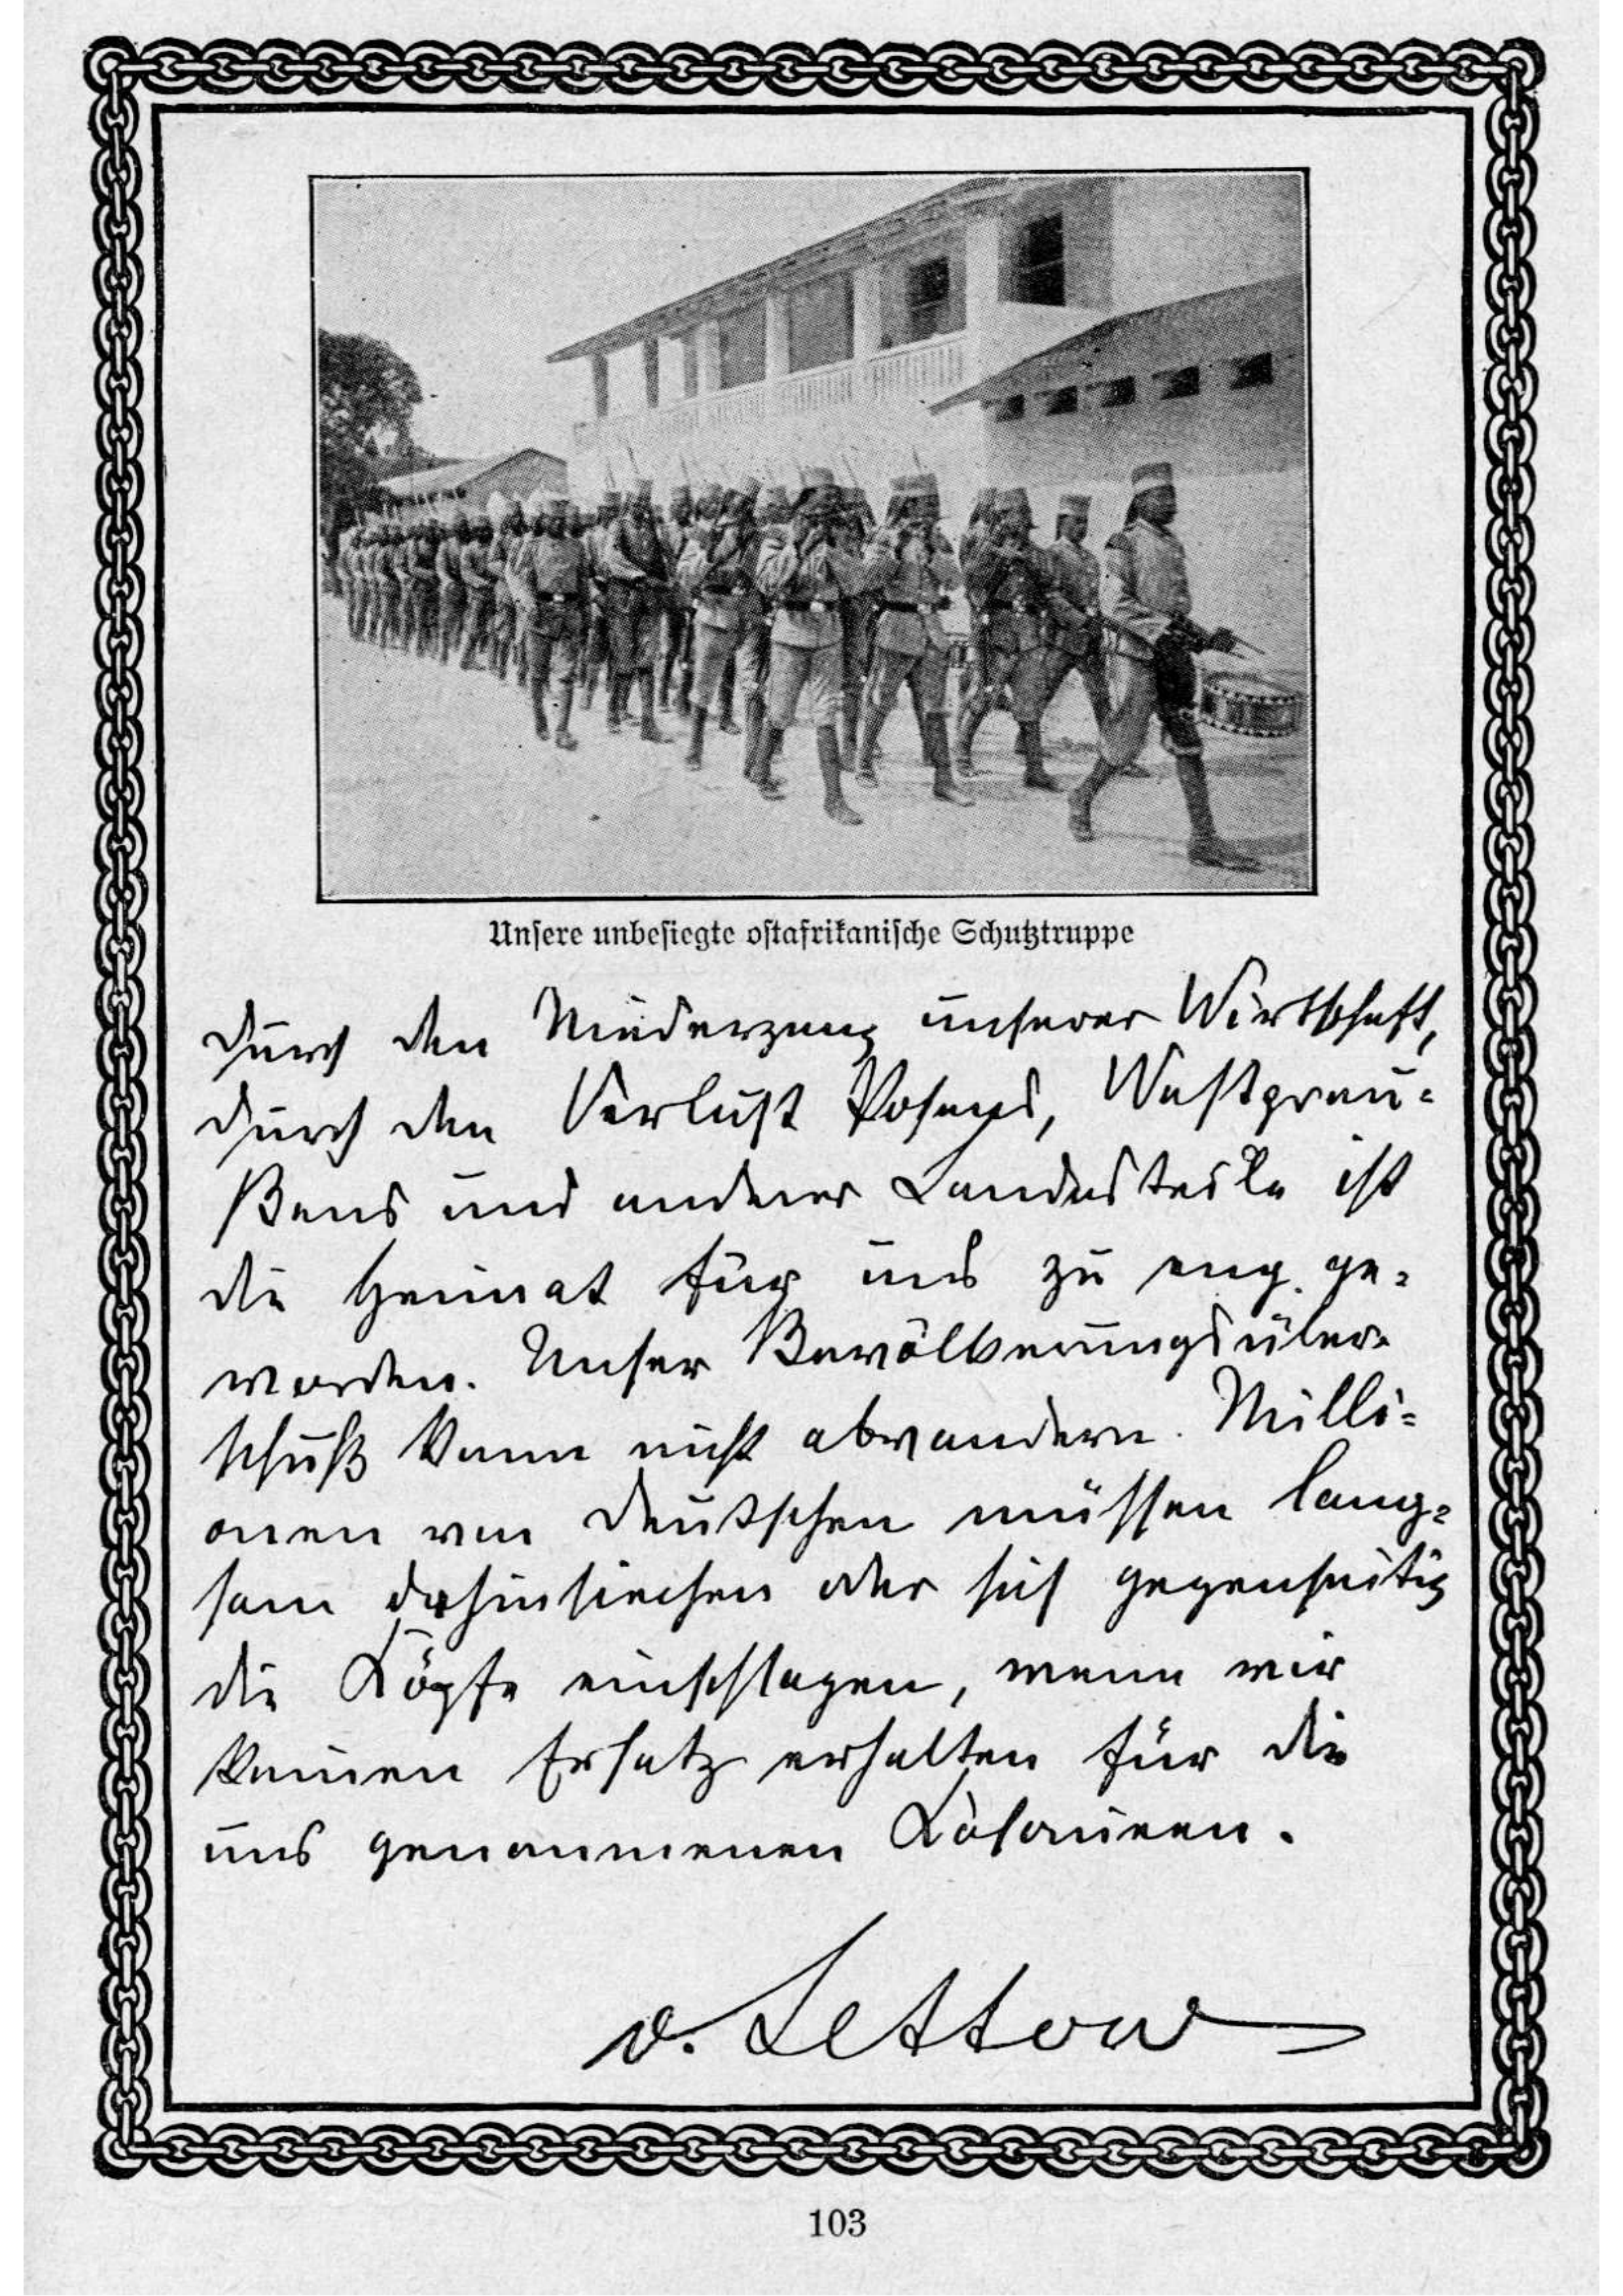 Unsere unbesiegte ostafrikanische Schutztruppe
durch den Niedergang unserer Wirtschaft,
durch den Verlust Posens, Westpreu-
ßens und anderer Landesteile ist
die Heimat für uns zu eng ge-
worden. Unser Bevölkerungsüber-
schuß kann nicht abwandern. Milli-
onen von Deutschen müssen lang-
sam dahinsiechen oder sich gegenseitig
die Köpfe einschlagen, wenn wir
keinen Ersatz erhalten für die
uns genommenen Kolonieen.
v. Lettow
103